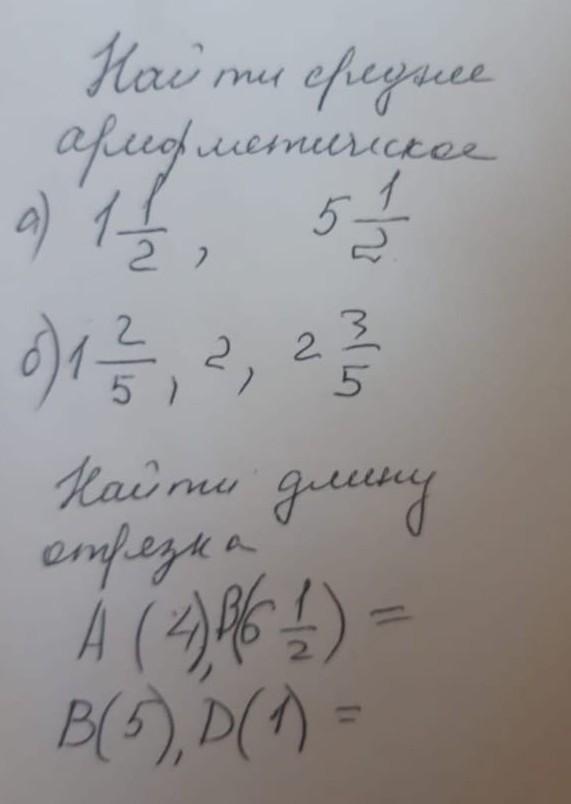 Найти среднее
арифметическое
а) 1 1/2, 5 1/2
б) 1 2/5, 2, 2 3/5
Найти длину
отрезка
A(4), B(6 1/2) =
B(5), D(1) =